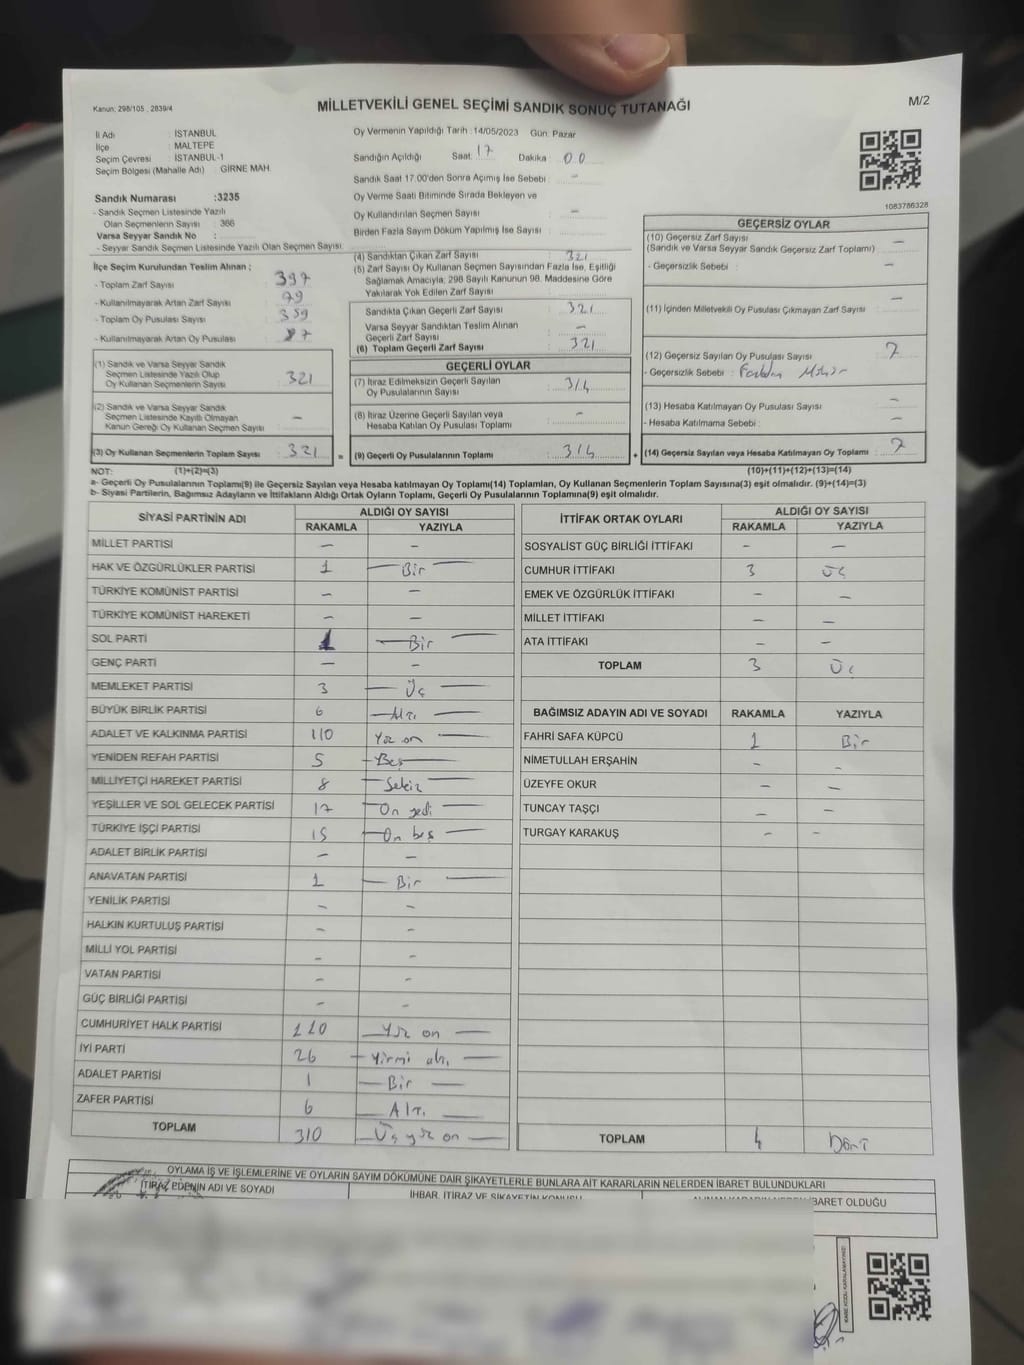 Kanun: 298/105 , 2839/4
MİLLETVEKİLİ GENEL SEÇİMİ SANDIK SONUÇ TUTANAĞI
M/2
İl Adı : İSTANBUL
İlçe : MALTEPE
Seçim Çevresi : İSTANBUL-1
Seçim Bölgesi (Mahalle Adı) : GİRNE MAH.
Oy Vermenin Yapıldığı Tarih :14/05/2023 Gün: Pazar
Sandığın Açıldığı Saat: 17 Dakika 00
Sandık Saat 17:00'den Sonra Açılmış İse Sebebi : -
Oy Verme Saati Bitiminde Sırada Bekleyen ve
Oy Kullandırılan Seçmen Sayısı : -
Birden Fazla Sayım Döküm Yapılmış İse Sayısı :
1083786328
Sandık Numarası :3235
- Sandık Seçmen Listesinde Yazılı
Olan Seçmenlerin Sayısı : 366
Varsa Seyyar Sandık No :
- Seyyar Sandık Seçmen Listesinde Yazılı Olan Seçmen Sayısı:
İlçe Seçim Kurulundan Teslim Alınan ;
- Toplam Zarf Sayısı : 397
- Kullanılmayarak Artan Zarf Sayısı : 79
- Toplam Oy Pusulası Sayısı :
- Kullanılmayarak Artan Oy Pusulası :
(1) Sandık ve Varsa Seyyar Sandık
Seçmen Listesinde Yazılı Olup
Oy Kullanan Seçmenlerin Sayısı : 321
(2) Sandık ve Varsa Seyyar Sandık
Seçmen Listesinde Kayıtlı Olmayan
Kanun Gereği Oy Kullanan Seçmen Sayısı : -
(3) Oy Kullanan Seçmenlerin Toplam Sayısı : 321 =
(4) Sandıktan Çıkan Zarf Sayısı : 321
(5) Zarf Sayısı Oy Kullanan Seçmen Sayısından Fazla İse, Eşitliği
Sağlamak Amacıyla; 298 Sayılı Kanunun 98. Maddesine Göre
Yakılarak Yok Edilen Zarf Sayısı :
Sandıkta Çıkan Geçerli Zarf Sayısı : 321
Varsa Seyyar Sandıktan Teslim Alınan
Geçerli Zarf Sayısı : -
(6) Toplam Geçerli Zarf Sayısı : 321
GEÇERLİ OYLAR
(7) İtiraz Edilmeksizin Geçerli Sayılan
Oy Pusulalarının Sayısı : 314
(8) İtiraz Üzerine Geçerli Sayılan veya
Hesaba Katılan Oy Pusulası Toplamı : -
(9) Geçerli Oy Pusulalarının Toplamı : 314 +
GEÇERSİZ OYLAR
(10) Geçersiz Zarf Sayısı
(Sandık ve Varsa Seyyar Sandık Geçersiz Zarf Toplamı) : -
- Geçersizlik Sebebi : -
(11) İçinden Milletvekili Oy Pusulası Çıkmayan Zarf Sayısı : -
(12) Geçersiz Sayılan Oy Pusulası Sayısı : 7
- Geçersizlik Sebebi : Fazladan Mühür
(13) Hesaba Katılmayan Oy Pusulası Sayısı : -
- Hesaba Katılmama Sebebi : -
(14) Geçersiz Sayılan veya Hesaba Katılmayan Oy Toplamı : 7
NOT: (1)+(2)=(3) (10)+(11)+(12)+(13)=(14)
a- Geçerli Oy Pusulalarının Toplamı(9) ile Geçersiz Sayılan veya Hesaba katılmayan Oy Toplamı(14) Toplamları, Oy Kullanan Seçmenlerin Toplam Sayısına(3) eşit olmalıdır. (9)+(14)=(3)
b- Siyasi Partilerin, Bağımsız Adayların ve İttifakların Aldığı Ortak Oyların Toplamı, Geçerli Oy Pusulalarının Toplamına(9) eşit olmalıdır.
SİYASİ PARTİNİN ADI ALDIĞI OY SAYISI
RAKAMLA YAZIYLA
MİLLET PARTİSİ - -
HAK VE ÖZGÜRLÜKLER PARTİSİ 1 Bir
TÜRKİYE KOMÜNİST PARTİSİ - -
TÜRKİYE KOMÜNİST HAREKETİ - -
SOL PARTİ 1 Bir
GENÇ PARTİ - -
MEMLEKET PARTİSİ 3 Üç
BÜYÜK BİRLİK PARTİSİ 6 Altı
ADALET VE KALKINMA PARTİSİ 110 Yüz on
YENİDEN REFAH PARTİSİ 5 Beş
MİLLİYETÇİ HAREKET PARTİSİ 8 Sekiz
YEŞİLLER VE SOL GELECEK PARTİSİ 17 On yedi
TÜRKİYE İŞÇİ PARTİSİ 15 On beş
ADALET BİRLİK PARTİSİ - -
ANAVATAN PARTİSİ 1 Bir
YENİLİK PARTİSİ - -
HALKIN KURTULUŞ PARTİSİ - -
MİLLİ YOL PARTİSİ - -
VATAN PARTİSİ - -
GÜÇ BİRLİĞİ PARTİSİ - -
CUMHURİYET HALK PARTİSİ 110 Yüz on
İYİ PARTİ 26 Yirmi altı
ADALET PARTİSİ 1 Bir
ZAFER PARTİSİ 6 Altı
TOPLAM 310 Üç yüz on
İTTİFAK ORTAK OYLARI ALDIĞI OY SAYISI
RAKAMLA YAZIYLA
SOSYALİST GÜÇ BİRLİĞİ İTTİFAKI - -
CUMHUR İTTİFAKI 3 Üç
EMEK VE ÖZGÜRLÜK İTTİFAKI - -
MİLLET İTTİFAKI - -
ATA İTTİFAKI - -
TOPLAM 3 Üç
BAĞIMSIZ ADAYIN ADI VE SOYADI RAKAMLA YAZIYLA
FAHRİ SAFA KÜPCÜ 1 Bir
NİMETULLAH ERŞAHİN - -
ÜZEYFE OKUR - -
TUNCAY TAŞÇI - -
TURGAY KARAKUŞ - -
TOPLAM 4 Dört
OYLAMA İŞ VE İŞLEMLERİNE VE OYLARIN SAYIM DÖKÜMÜNE DAİR ŞİKAYETLERLE BUNLARA AİT KARARLARIN NELERDEN İBARET BULUNDUKLARI
İTİRAZ EDENİN ADI VE SOYADI
İHBAR, İTİRAZ VE ŞİKAYETİN KONUSU
İBARET OLDUĞU
KARE KODU KARALAMAYINIZ!